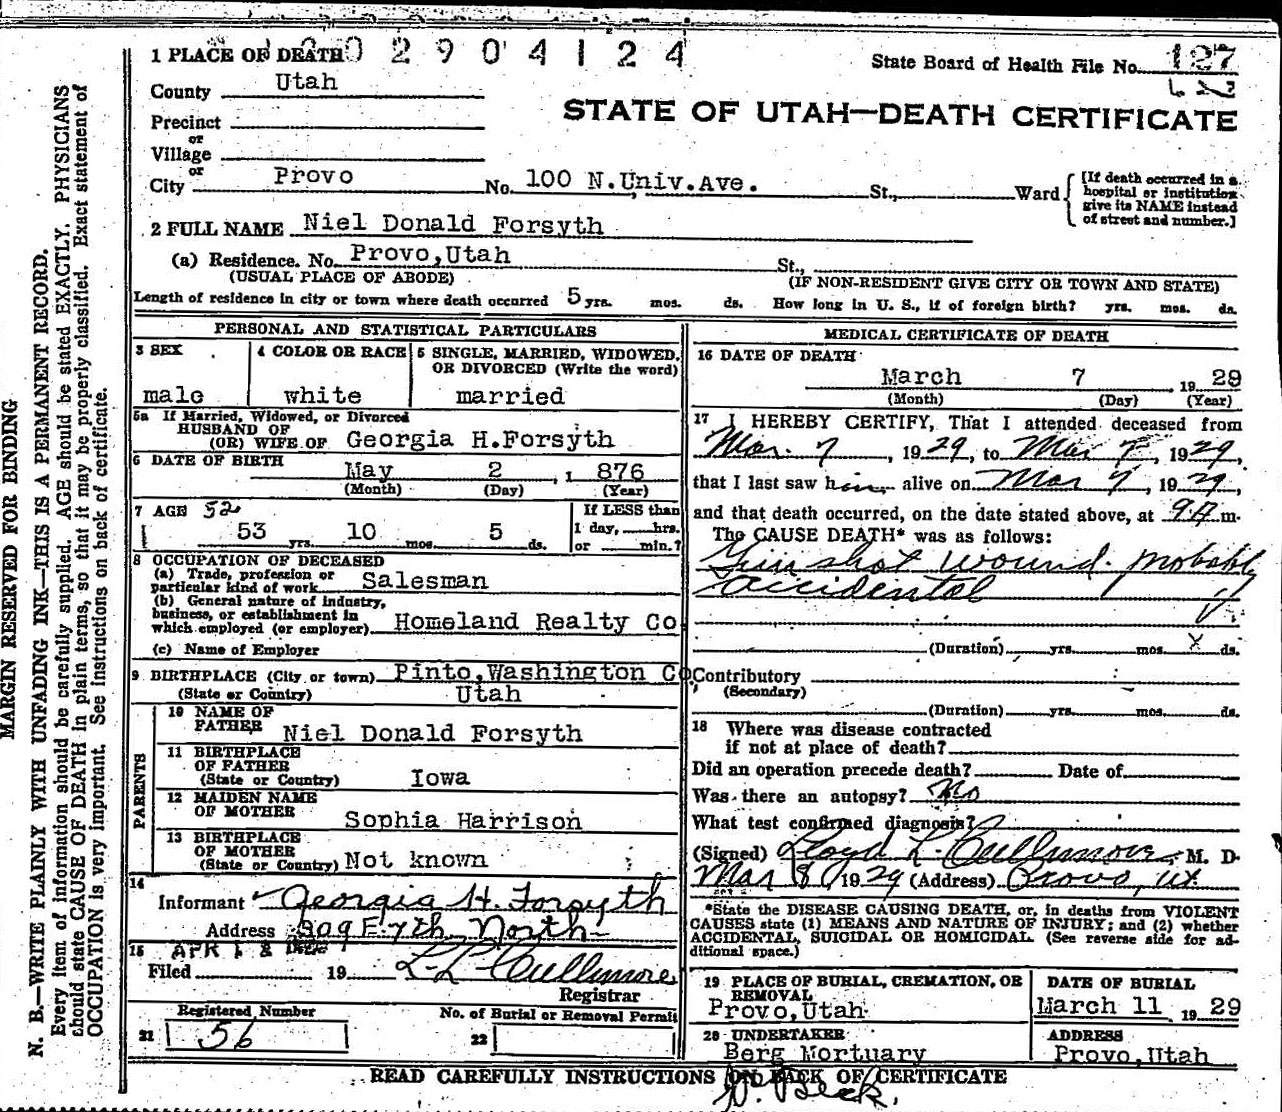 1 PLACE OF DEATH 2904124
State Board of Health File No. 127
County Utah
STATE OF UTAH—DEATH CERTIFICATE
Precinct
or
Village
or
City Provo No. 100 N.Univ.Ave. St., Ward
[If death occurred in a
hospital or institution
give its NAME instead
of street and number.]
2 FULL NAME Niel Donald Forsyth
(a) Residence. No. Provo,Utah St.,
(USUAL PLACE OF ABODE) (IF NON-RESIDENT GIVE CITY OR TOWN AND STATE)
Length of residence in city or town where death occurred 5 yrs. mos. ds. How long in U. S., if of foreign birth? yrs. mos. ds.
PERSONAL AND STATISTICAL PARTICULARS
3 SEX
male
4 COLOR OR RACE
white
5 SINGLE, MARRIED, WIDOWED,
OR DIVORCED (Write the word)
married
5a If Married, Widowed, or Divorced
HUSBAND OF
(OR) WIFE OF Georgia H.Forsyth
6 DATE OF BIRTH May 2, 1876
(Month) (Day) (Year)
7 AGE 52
53 yrs. 10 mos. 5 ds.
If LESS than
1 day, hrs.
or min.?
8 OCCUPATION OF DECEASED
(a) Trade, profession or
particular kind of work Salesman
(b) General nature of industry,
business, or establishment in
which employed (or employer) Homeland Realty Co
(c) Name of Employer
9 BIRTHPLACE (City or town) Pinto,Washington Co
(State or Country) Utah
PARENTS
10 NAME OF
FATHER Niel Donald Forsyth
11 BIRTHPLACE
OF FATHER
(State or Country) Iowa
12 MAIDEN NAME
OF MOTHER Sophia Harrison
13 BIRTHPLACE
OF MOTHER
(State or Country) Not known
14
Informant Georgia H. Forsyth
Address 309 E. 7th North
15 APR 1 8
Filed 19 L. L. Cullimore
Registrar
Registered Number
21 56
No. of Burial or Removal Permit
22
MEDICAL CERTIFICATE OF DEATH
16 DATE OF DEATH
March 7, 1929
(Month) (Day) (Year)
17 I HEREBY CERTIFY, That I attended deceased from
Mar. 7, 1929, to Mar 7, 1929,
that I last saw him alive on Mar 7, 1929,
and that death occurred, on the date stated above, at 9A m.
The CAUSE DEATH* was as follows:
Gun shot wound. probably
accidental
(Duration) yrs. mos. ds.
Contributory
(Secondary)
(Duration) yrs. mos. ds.
18 Where was disease contracted
if not at place of death?
Did an operation precede death? Date of
Was there an autopsy? No
What test confirmed diagnosis?
(Signed) Lloyd L. Cullimore, M. D.
Mar 8, 1929 (Address) Provo, Ut.
*State the DISEASE CAUSING DEATH, or, in deaths from VIOLENT
CAUSES state (1) MEANS AND NATURE OF INJURY; and (2) whether
ACCIDENTAL, SUICIDAL OR HOMICIDAL. (See reverse side for ad-
ditional space.)
19 PLACE OF BURIAL, CREMATION, OR
REMOVAL
Provo,Utah
DATE OF BURIAL
March 11, 1929
20 UNDERTAKER
Berg Mortuary
ADDRESS
Provo,Utah
READ CAREFULLY INSTRUCTIONS ON BACK OF CERTIFICATE
MARGIN RESERVED FOR BINDING
N. B.—WRITE PLAINLY WITH UNFADING INK—THIS IS A PERMANENT RECORD.
Every item of information should be carefully supplied. AGE should be stated EXACTLY. PHYSICIANS
should state CAUSE OF DEATH in plain terms, so that it may be properly classified. Exact statement of
OCCUPATION is very important. See instructions on back of certificate.